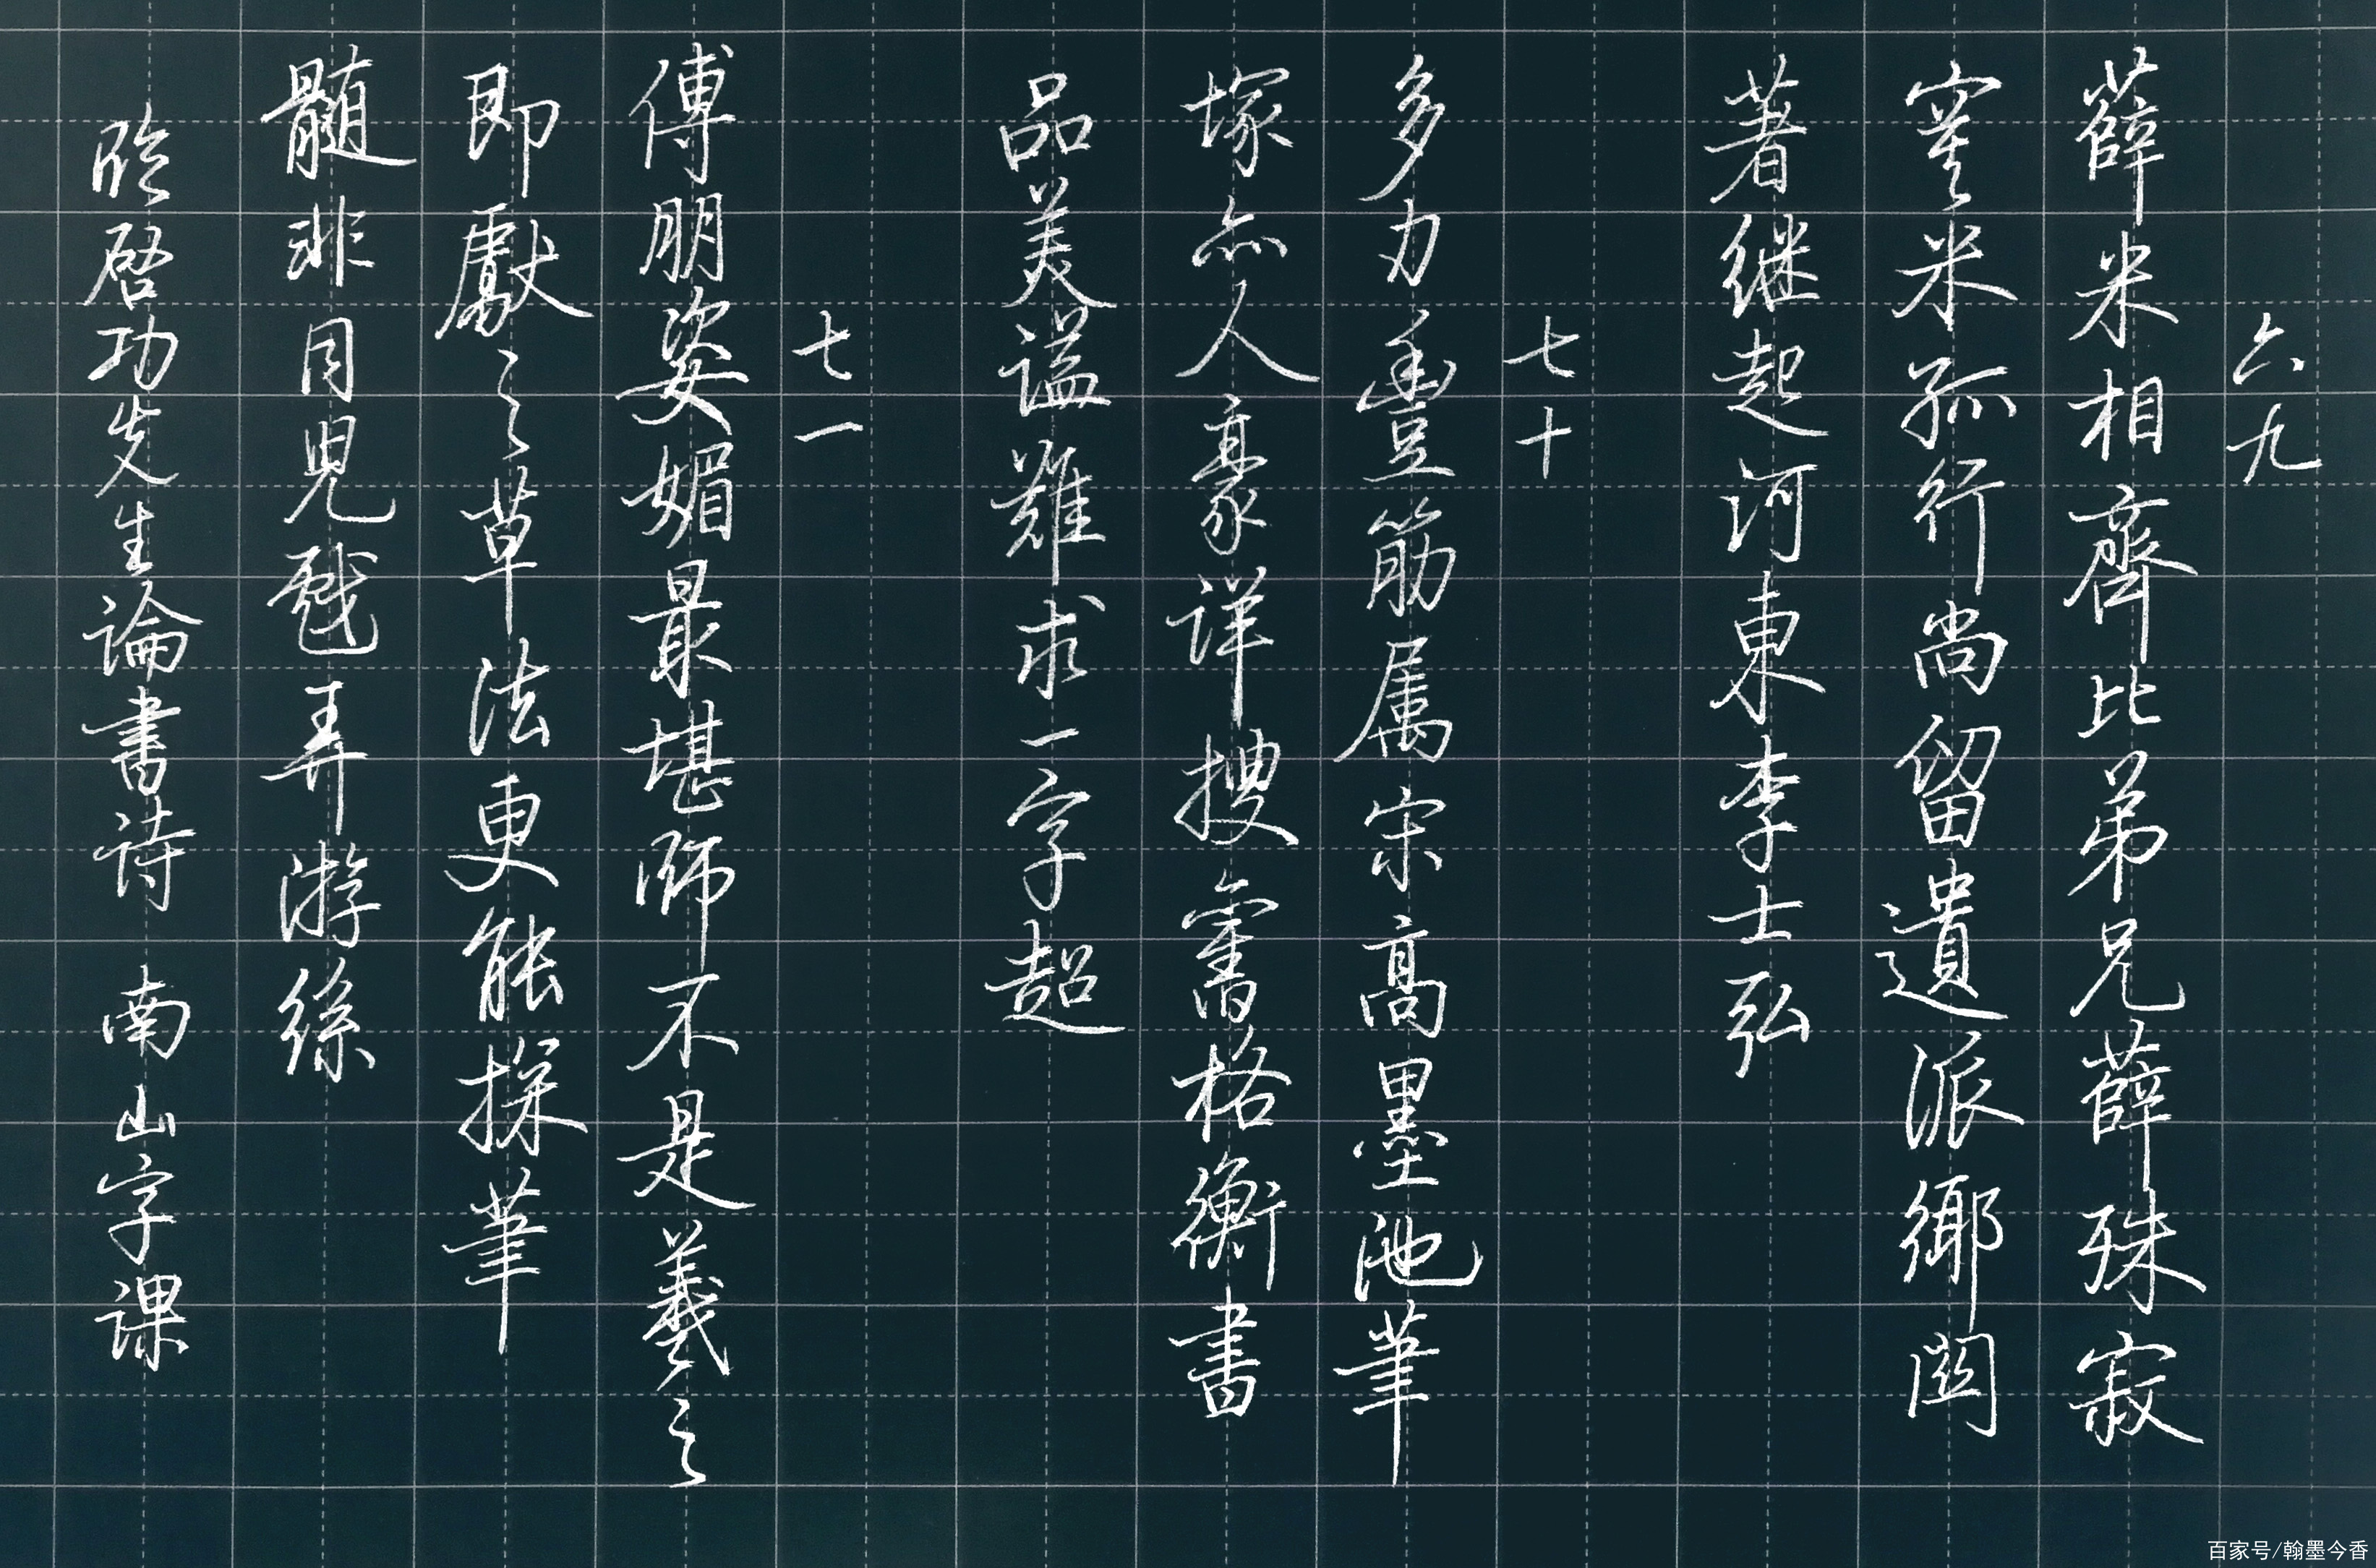 六九
薛米相齊比弟兄薛殊寂
寞米孤行尚留遺派鄉關
著继起河東李士弘
七十
多力豐筋属宋高墨池筆
塚亦人豪详搜舊格衡書
品美谥難求一字超
七一
傅朋姿媚最堪師不是羲之
即獻之草法更能探筆
髓非同児戲弄游絲
临启功先生論書诗 南山字课
百家号/翰墨今香